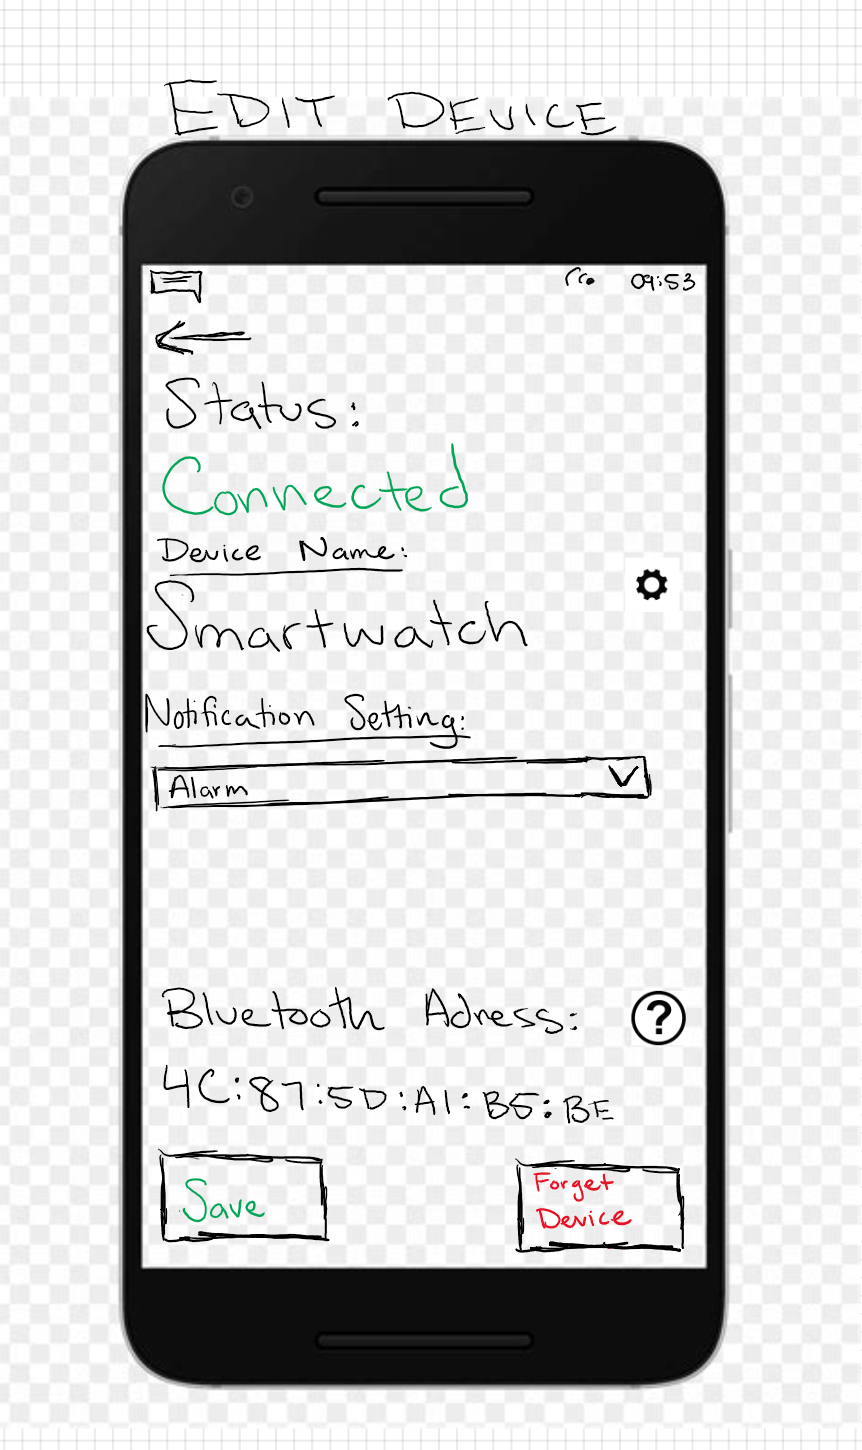 EDIT DEVICE
09:53
Status:
Connected
Device Name:
Smartwatch
Notification Setting:
Alarm
Bluetooth Adress:
?
4C:87:5D:A1:B5:BE
Save
Forget
Device